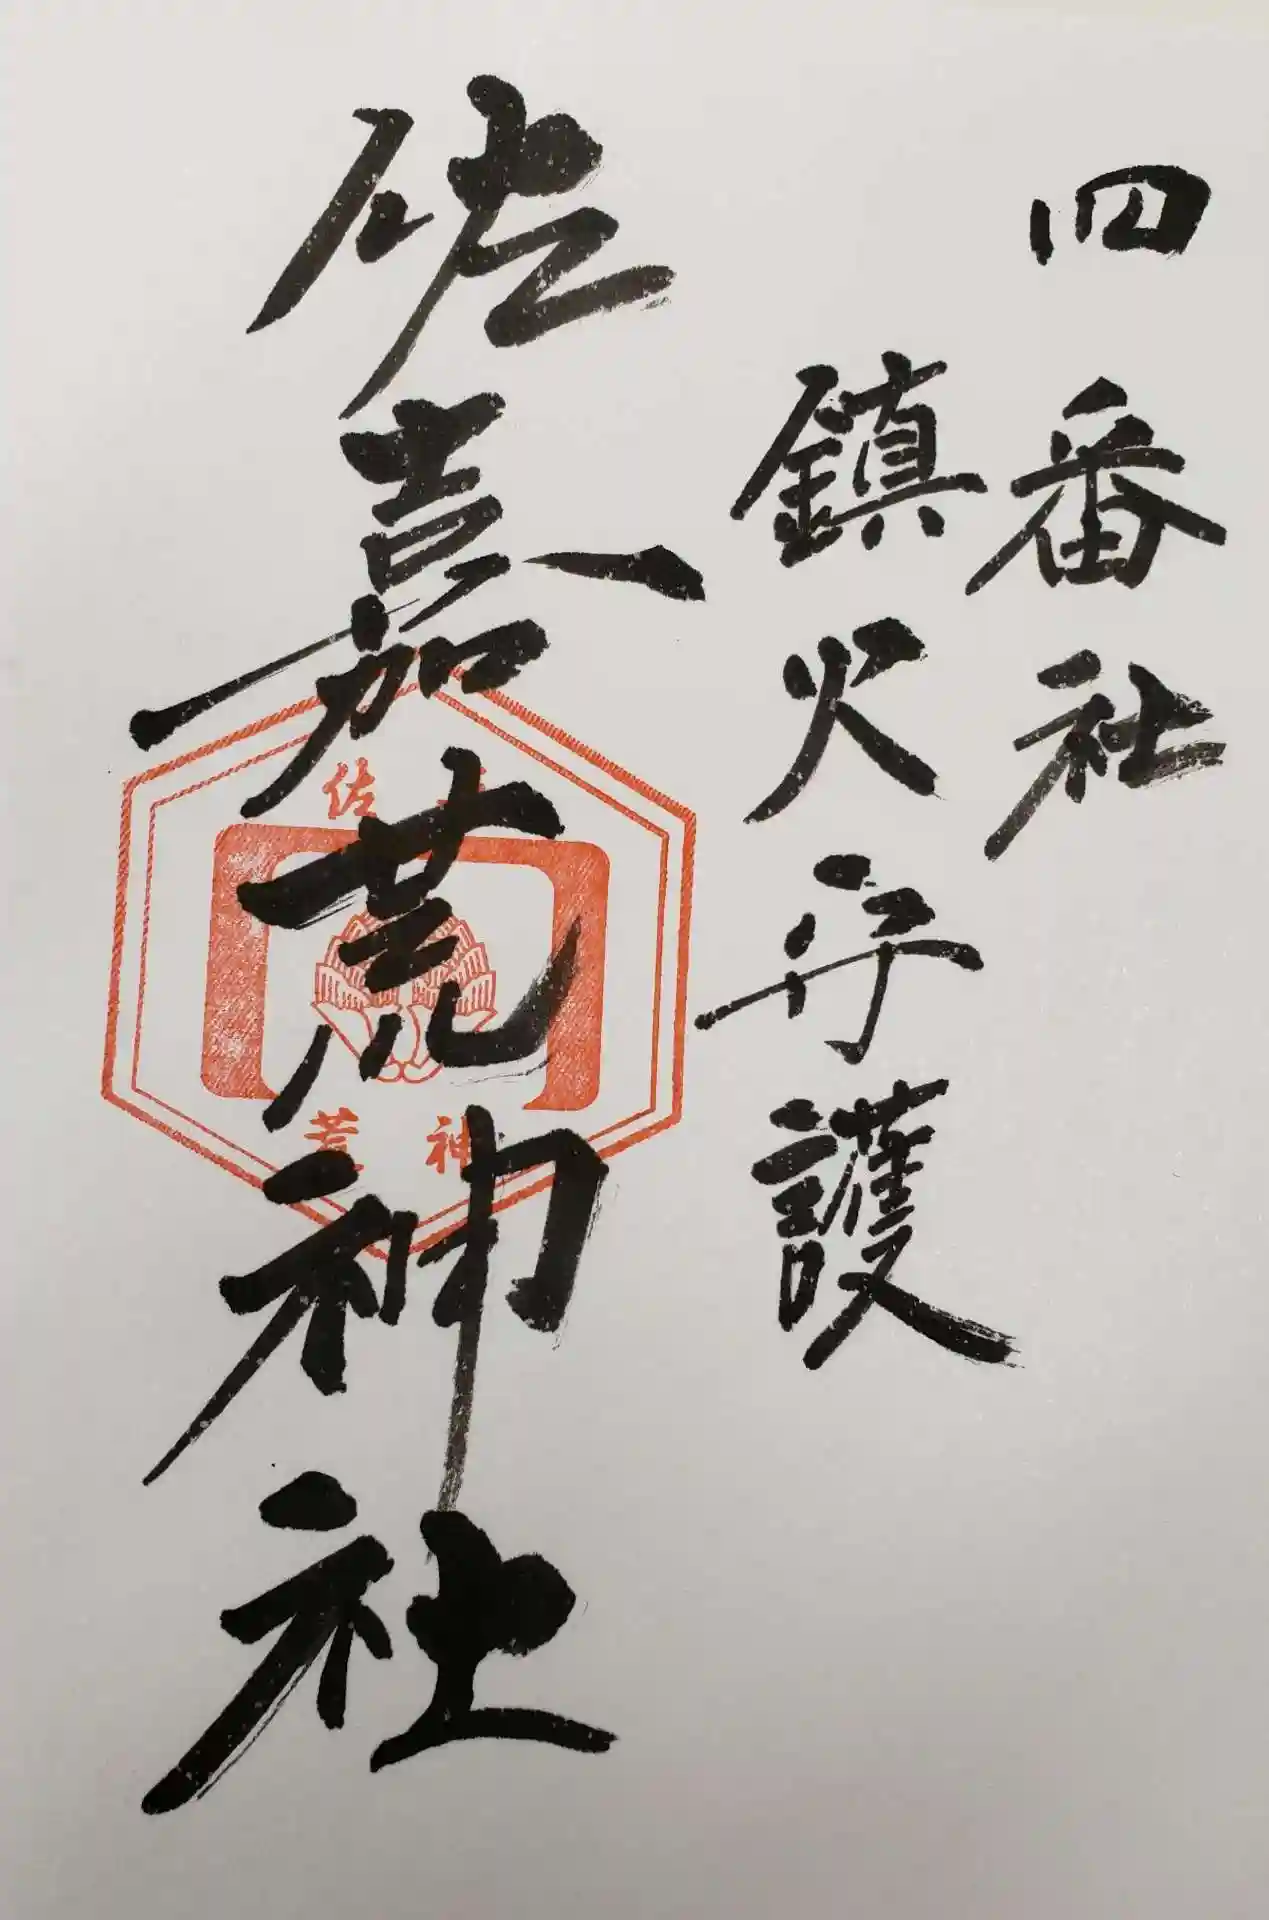 四番社
鎮火守護
佐嘉荒神社
佐
荒神